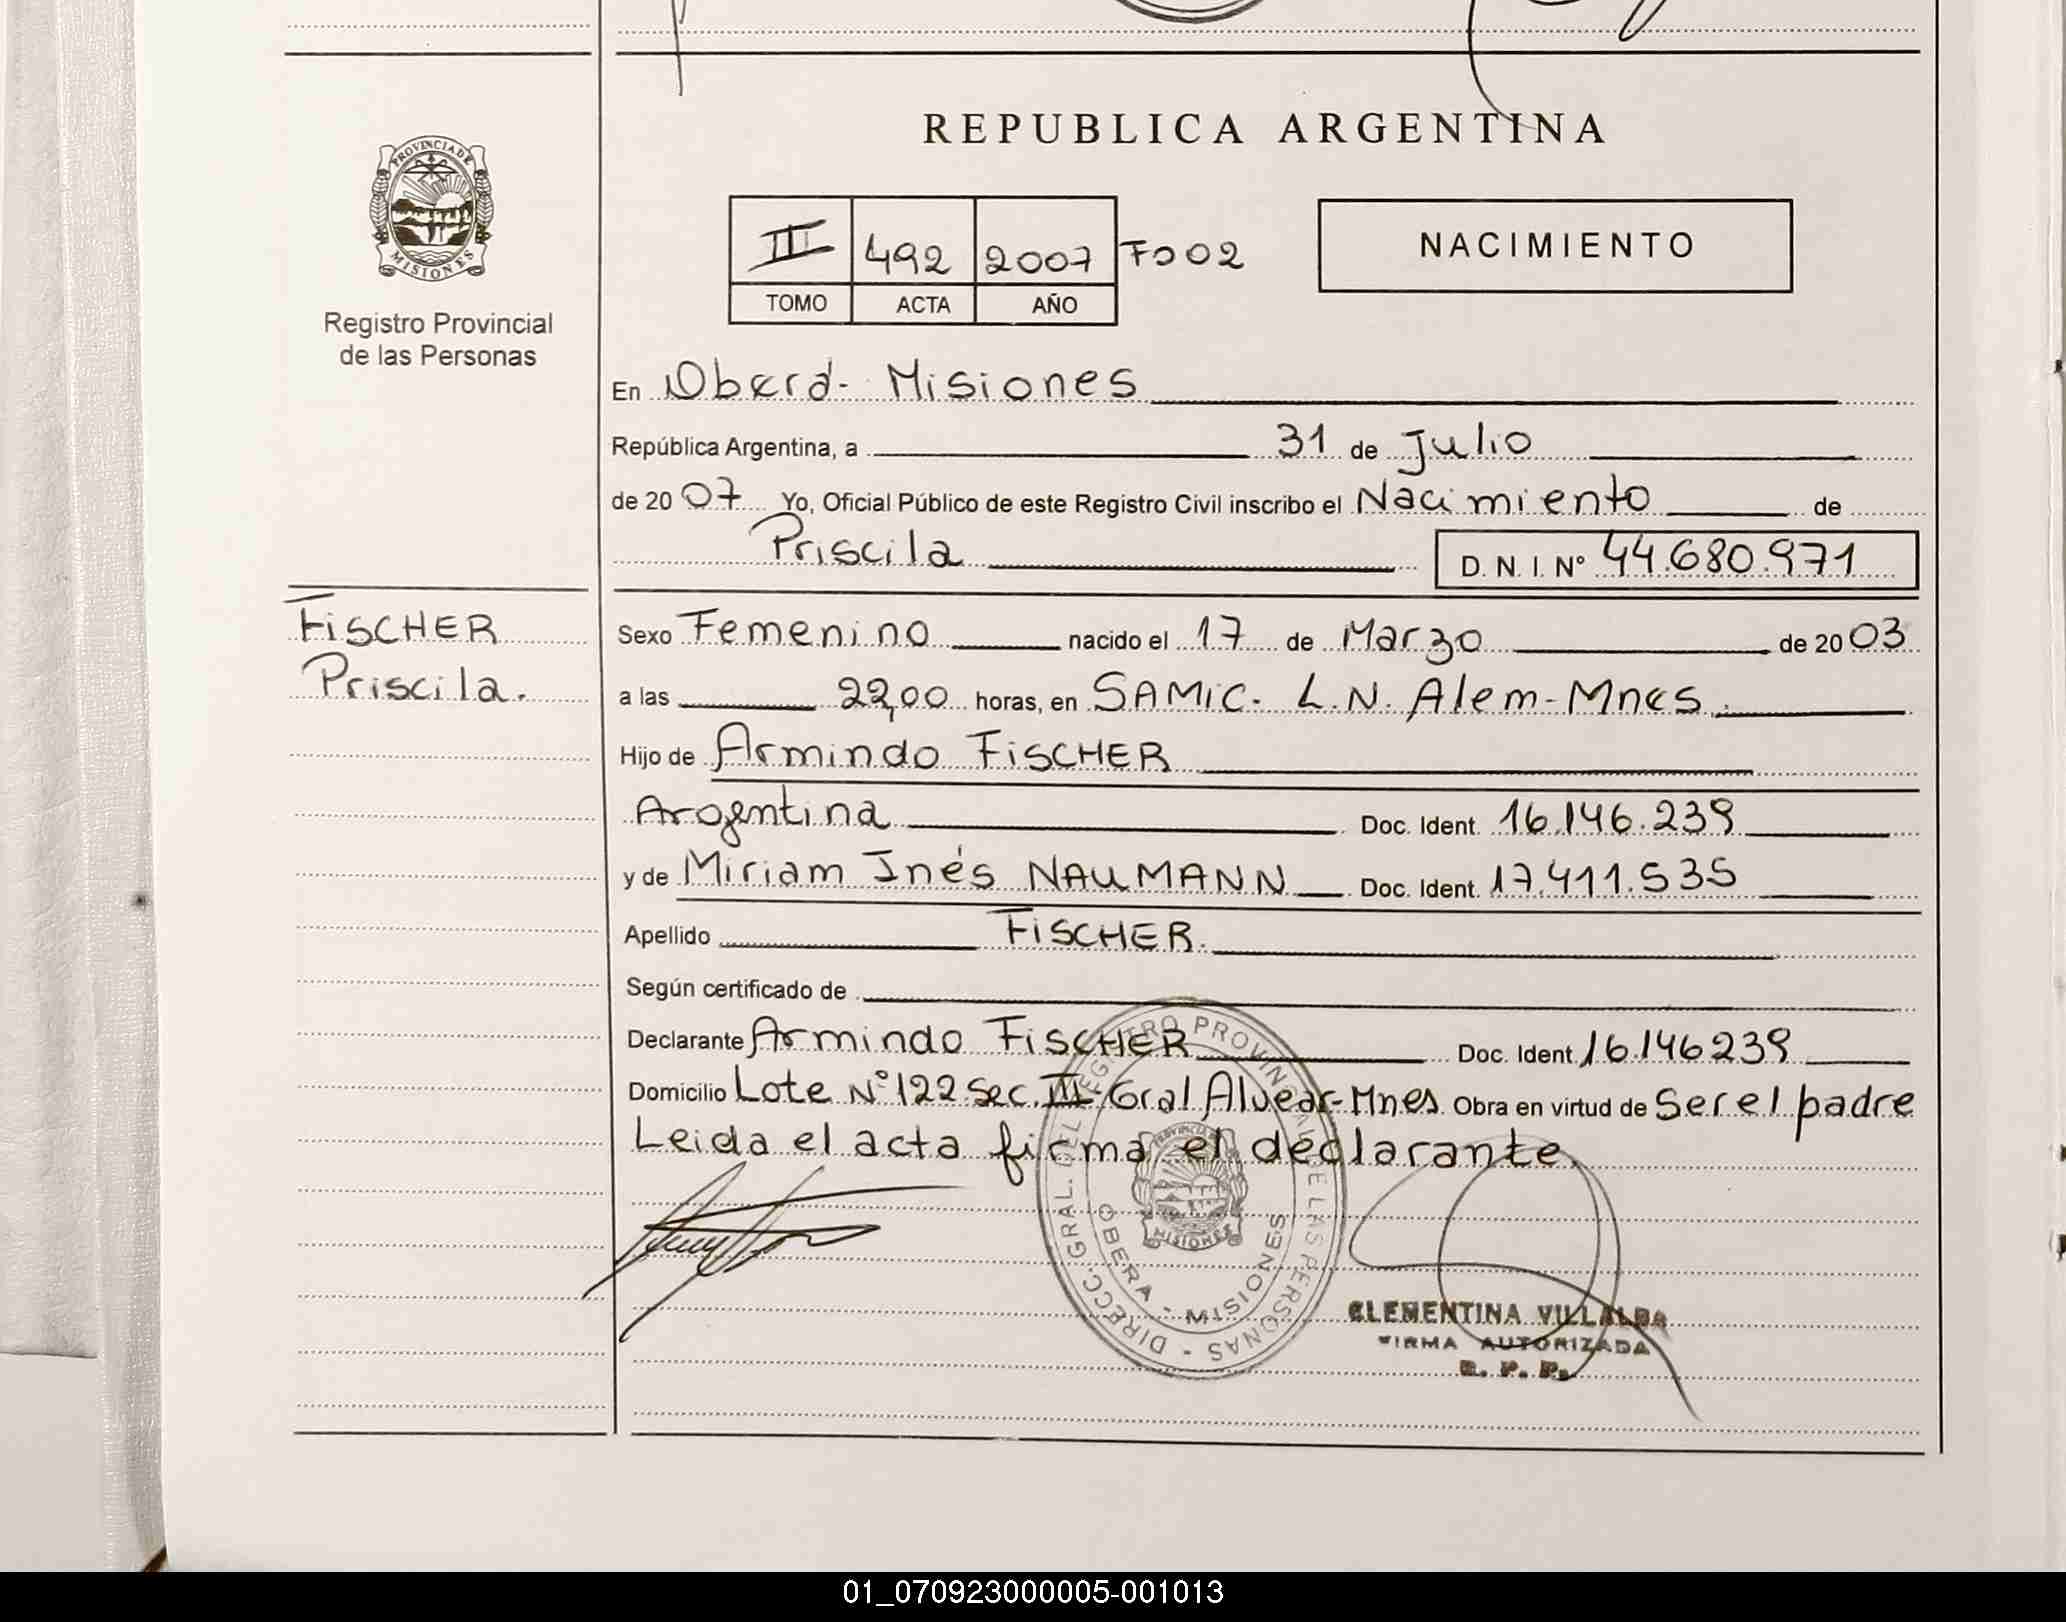 REPUBLICA ARGENTINA
PROVINCIA DE
MISIONES
Registro Provincial
de las Personas
III 492 2007 Fº02
TOMO ACTA AÑO
NACIMIENTO
En Oberá- Misiones
República Argentina, a 31 de Julio
de 2007 Yo, Oficial Público de este Registro Civil inscribo el Nacimiento de
Priscila D. N. I. Nº 44.680.971
FISCHER
Priscila.
Sexo Femenino nacido el 17 de Marzo de 2003
a las 22,00 horas, en SAMIC. L.N. Alem-Mnes.
Hijo de Armindo FISCHER
Argentina Doc. Ident. 16.146.239
y de Miriam Inés NAUMANN Doc. Ident. 17.411.535
Apellido FISCHER.
Según certificado de
Declarante Armindo FISCHER Doc. Ident. 16.146239
Domicilio Lote Nº122 Sec. III-Gral Alvear-Mnes. Obra en virtud de Ser el padre
Leida el acta firma el declarante.
DIRECC. GRAL. DEL REGISTRO PROVINCIAL DE LAS PERSONAS -
OBERA - MISIONES
PROVINCIA DE
MISIONES
CLEMENTINA VILLALBA
FIRMA AUTORIZADA
R. P. P.
01_070923000005-001013